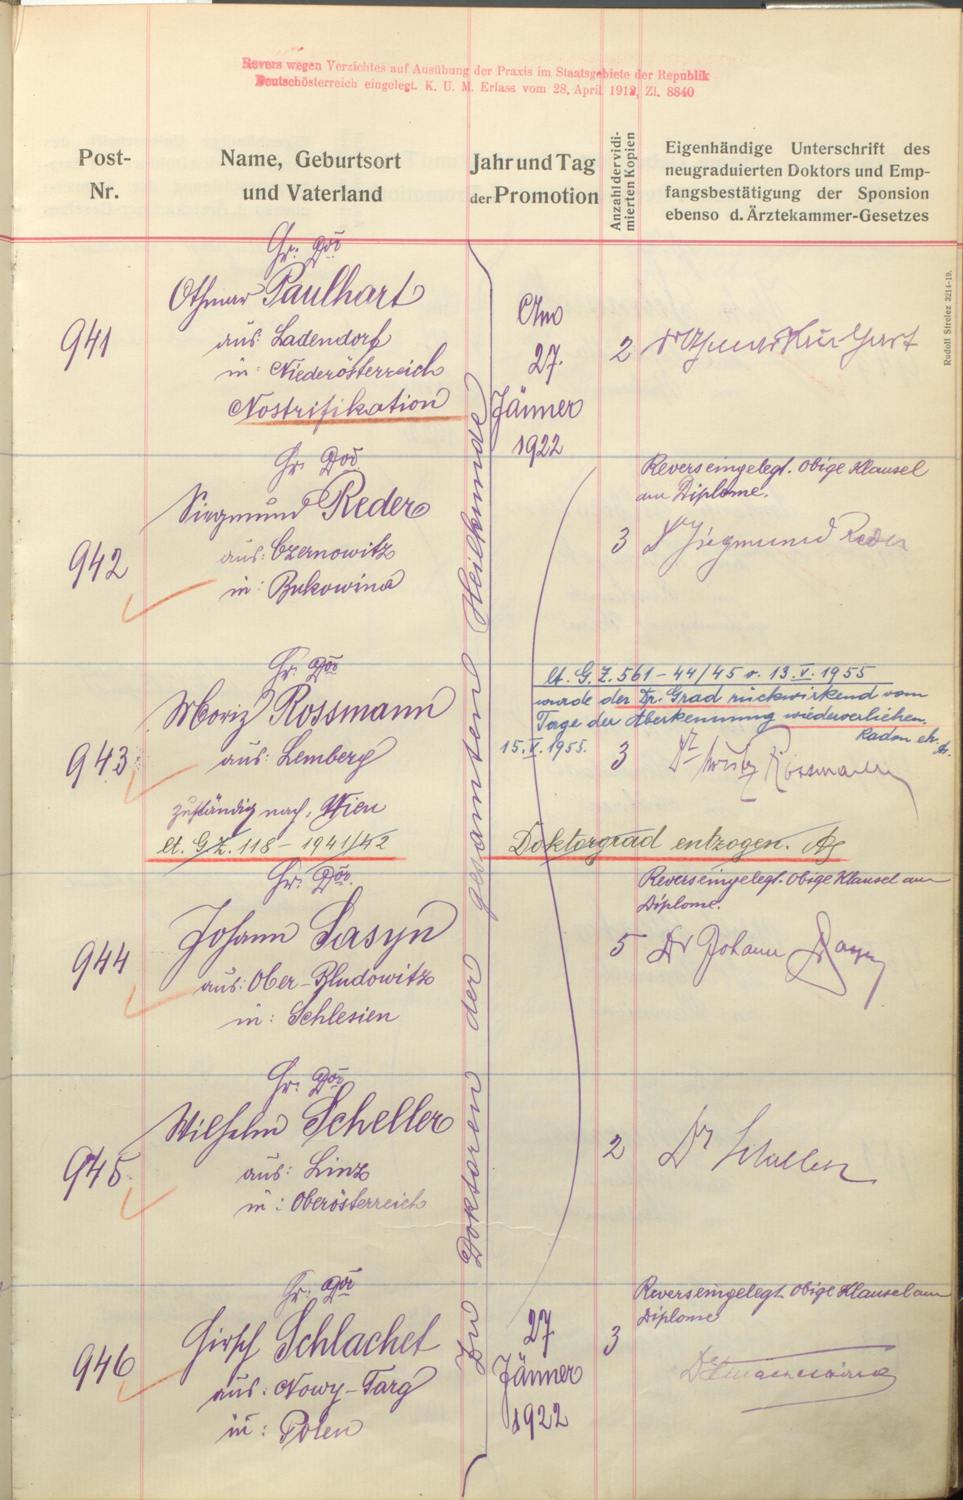 Revers wegen Verzichtes auf Ausübung der Praxis im Staatsgebiete der Republik
Deutschösterreich eingelegt. K. U. M. Erlass vom 28. April 1919, Zl. 8840
Post-
Nr.
Name, Geburtsort
und Vaterland
Jahr und Tag
der Promotion
Anzahl der vidi-
mierten Kopien
Eigenhändige Unterschrift des
neugraduierten Doktors und Emp-
fangsbestätigung der Sponsion
ebenso d. Ärztekammer-Gesetzes
Rudolf Strelez 3214-19.
Zu Doktoren der gesamten Heilkunde
Hr. Dor
Othmar Paulhart
941
aus: Ladendorf
in: Niederösterreich
Nostrifikation
Am
27.
Jänner
1922
2
Dr Othmar Paulhart
Hr. Dor
Siegmund Reder
942
aus: Czernowitz
in: Bukowina
Revers eingelegt. Obige Klausel
am Diplome.
3
Dr Siegmund Reder
Hr. Dor
Moriz Rossmann
943
aus: Lemberg
zuständig nach, Wien
lt. G.Z. 118 – 1941/42
lt. G.Z. 561 – 44/45 v. 13.V.1955
wurde der Dr. Grad rückwirkend vom
Tage der Aberkennung wiederverliehen.
Radon eh.
15.V.1955.
3
Dr Moritz Rossmann
Doktorgrad entzogen.
Hr. Dor
Johann Sasyn
944
aus: Ober-Bludowitz
in: Schlesien
Revers eingelegt. Obige Klausel am
Diplome.
5
Dr Johann Sasyn
Hr. Dor
Wilhelm Scheller
945
aus: Linz
in: Oberösterreich
2
Dr Scheller
Hr. Dor
Hirsch Schlachet
946
aus: Nowy-Targ
in: Polen
27
Jänner
1922
Revers eingelegt. Obige Klausel am
Diplome
3